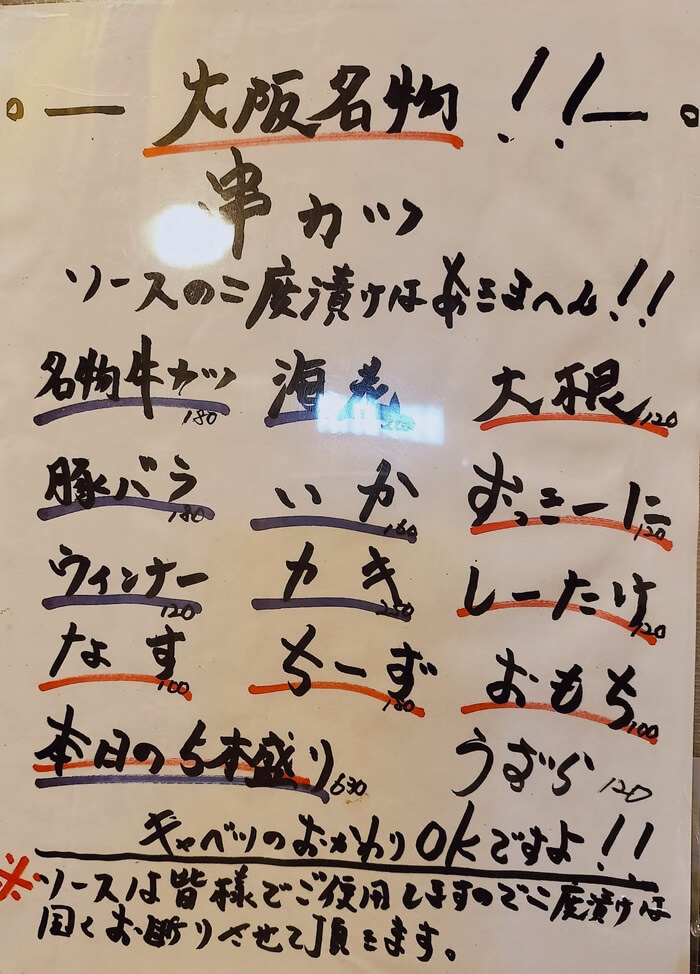 大阪名物!!
串カツ
ソースの二度漬けはあきまへん!!
名物牛カツ 180
海老
大根 120
豚バラ 180
いか 160
ずっきーに 120
ウィンナー 120
カキ 250
しーたけ 120
なす 100
ちーず 180
おもち 100
本日の5本盛り 630
うずら 120
キャベツのおかわりOKですよ!!
※ソースは皆様でご使用しますので二度漬けは
固くお断りさせて頂きます。